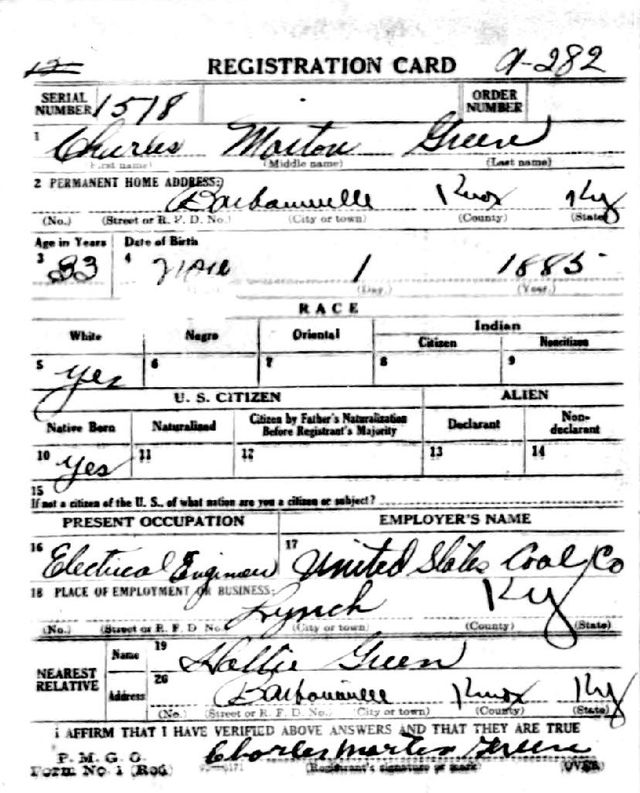 12 REGISTRATION CARD 9-282
SERIAL NUMBER 1518 ORDER NUMBER
1 Charles Marton Green
(First name) (Middle name) (Last name)
2 PERMANENT HOME ADDRESS:
Barbourville Knox Ky
(No.) (Street or R. F. D. No.) (City or town) (County) (State)
Age in Years Date of Birth
3 33 4 1 1885
(Day.) (Year.)
RACE
White Negro Oriental Indian
Citizen Noncitizen
5 yes 6 7 8 9
U. S. CITIZEN ALIEN
Native Born Naturalized Citizen by Father's Naturalization Before Registrant's Majority Declarant Non-declarant
10 yes 11 12 13 14
15
If not a citizen of the U. S., of what nation are you a citizen or subject?
PRESENT OCCUPATION EMPLOYER'S NAME
16 Electrical Engineer 17 United States Coal Co
18 PLACE OF EMPLOYMENT OR BUSINESS:
Lynch Ky
(No.) (Street or R. F. D. No.) (City or town) (County) (State)
NEAREST RELATIVE Name 19 Hallie Green
Address 20 Barbourville Knox Ky
(No.) (Street or R. F. D. No.) (City or town) (County) (State)
I AFFIRM THAT I HAVE VERIFIED ABOVE ANSWERS AND THAT THEY ARE TRUE
P. M. G. O.
Form No. 1 (Red) Charles Martin Green
(Registrant's signature or mark) (OVER)